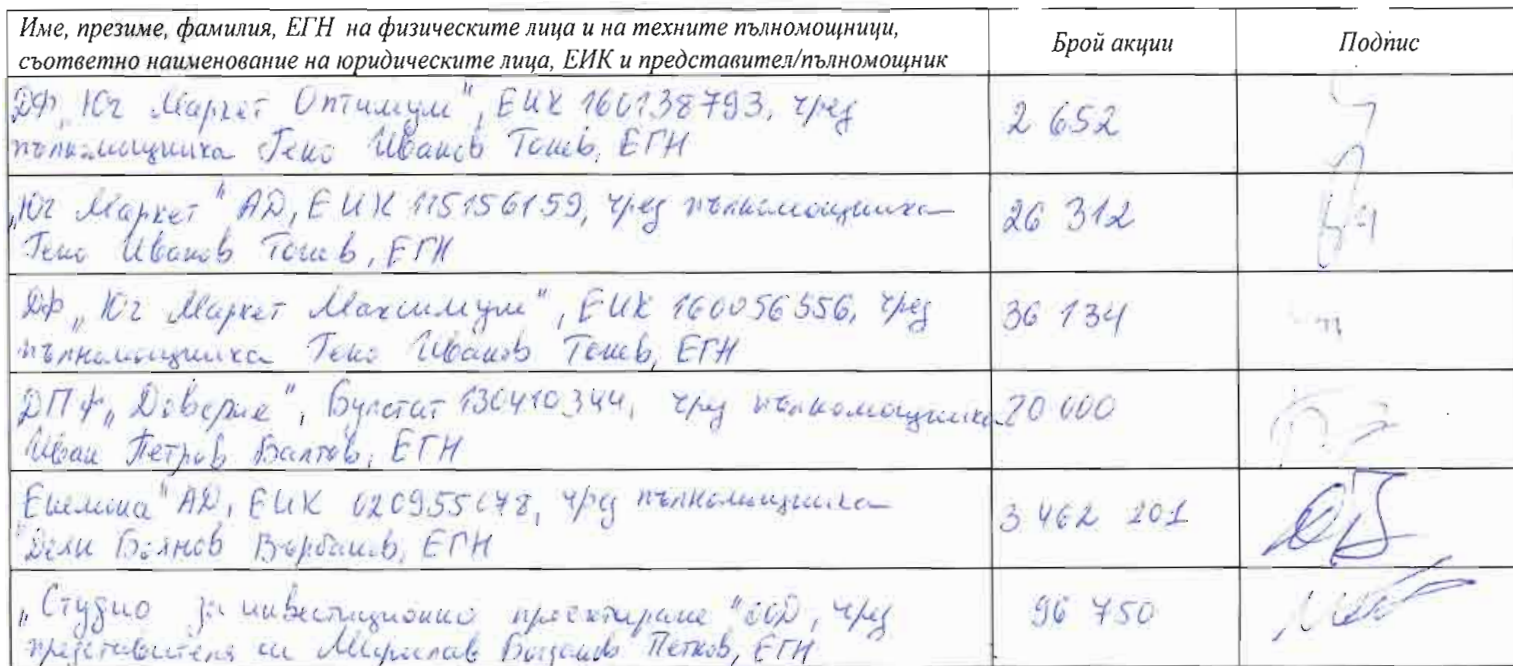 Име, презиме, фамилия, ЕГН на физическите лица и на техните пълномощници,
съответно наименование на юридическите лица, ЕИК и представител/пълномощник
Брой акции
Подпис
ДФ „Юг Маркет Оптимум", ЕИК 160138793, чрез
пълномощника Гено Иванов Тонев, ЕГН
2 652
„Юг Маркет" АД, ЕИК 115156159, чрез пълномощника
Гено Иванов Тонев, ЕГН
26 312
ДФ „Юг Маркет Максимум", ЕИК 160056556, чрез
пълномощника Гено Иванов Тонев, ЕГН
36 134
ДПФ „Доверие", Булстат 130410344, чрез пълномощника
Иван Петров Балтов, ЕГН
20 000
Енемона" АД, ЕИК 020955078, чрез пълномощника
Боянов Върбанов, ЕГН
3 462 201
„Студио за инвестиционно проектиране" ООД, чрез
представителя си Богданов Петков, ЕГН
96 750